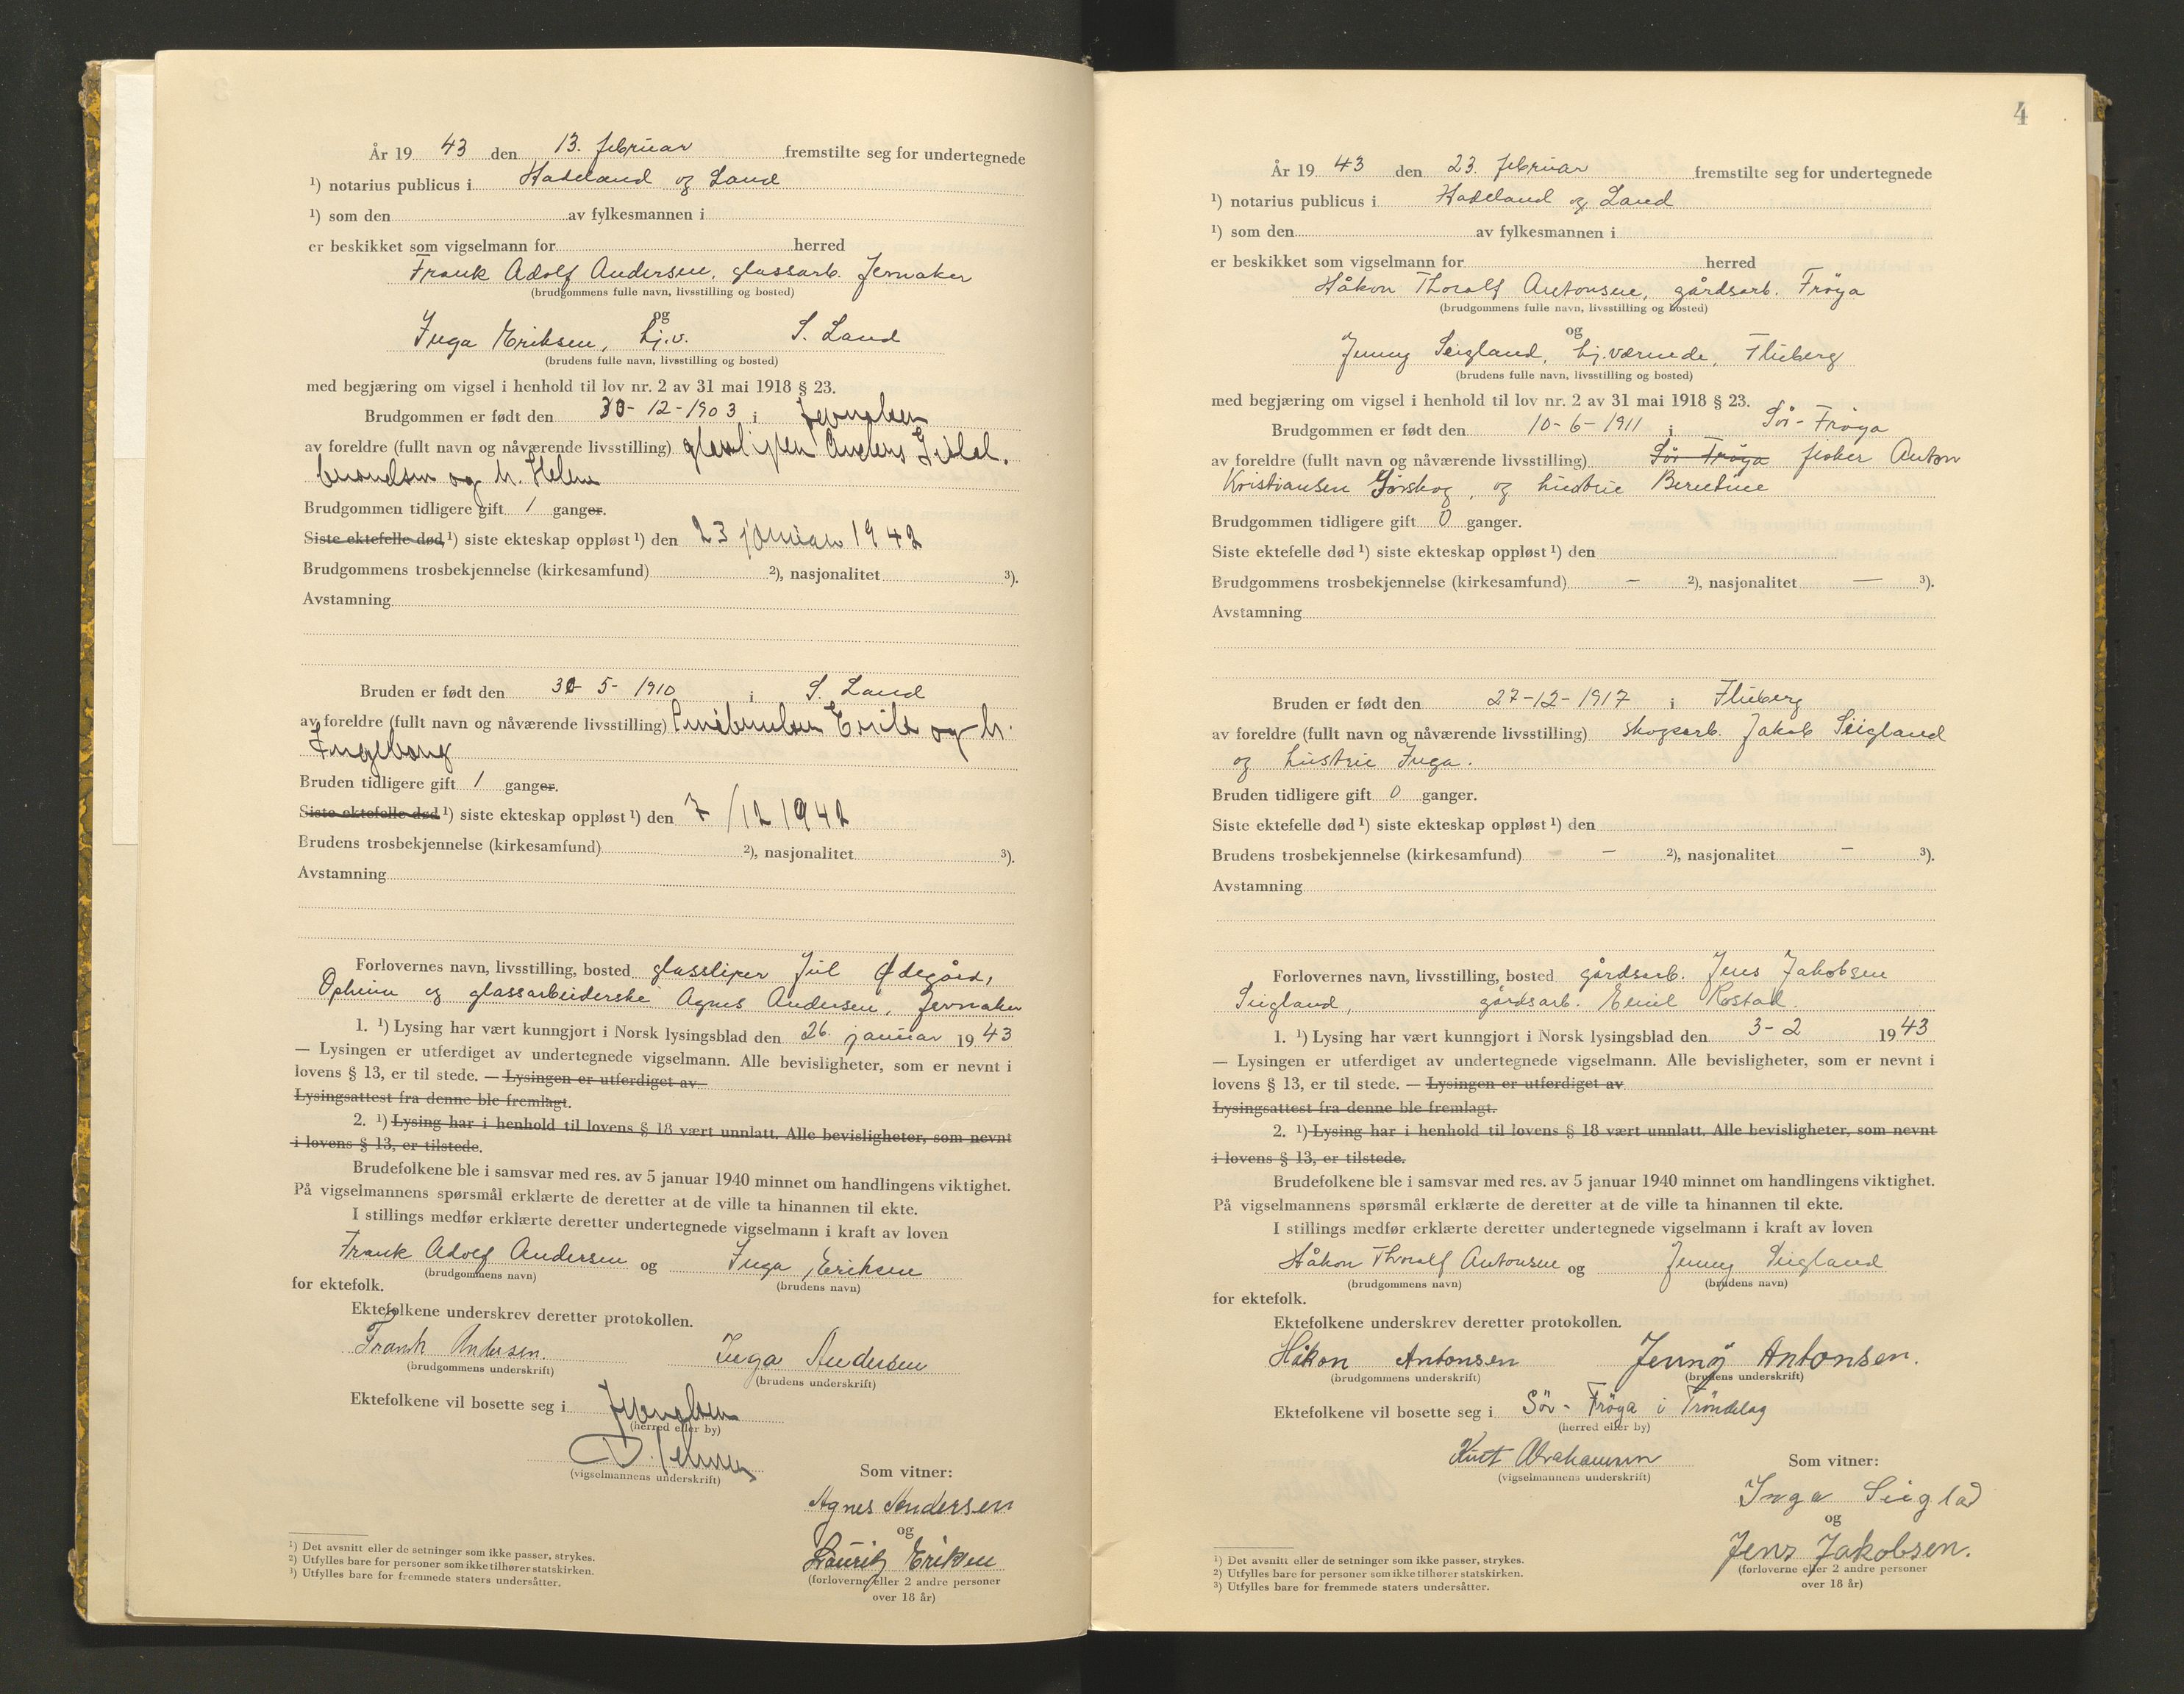 År 19 43 den 13. februar fremstilte seg for undertegnede
¹) notarius publicus i Hadeland og Land
¹) som den av fylkesmannen i
er beskikket som vigselmann for herred
Frank Adolf Andersen, glassarb. Jevnaker
(brudgommens fulle navn, livsstilling og bosted)
og
Inga Eriksen, hj.v. S. Land
(brudens fulle navn, livsstilling og bosted)
med begjæring om vigsel i henhold til lov nr. 2 av 31 mai 1918 § 23.
Brudgommen er født den 30-12-1903 i Jevnaker
av foreldre (fullt navn og nåværende livsstilling) Anders
og h. Helene
Brudgommen tidligere gift 1 ganger.
Siste ektefelle død ¹) siste ekteskap oppløst ¹) den 23 januar 1942
Brudgommens trosbekjennelse (kirkesamfund) ²), nasjonalitet ³).
Avstamning
Bruden er født den 30-5-1910 i S. Land
av foreldre (fullt navn og nåværende livsstilling) Erik og h.
Ingeborg
Bruden tidligere gift 1 ganger.
Siste ektefelle død ¹) siste ekteskap oppløst ¹) den 7/12 1942
Brudens trosbekjennelse (kirkesamfund) ²), nasjonalitet ³).
Avstamning
Forlovernes navn, livsstilling, bosted glassliper Jul Ødegård,
Opheim og glassarbeiderske Agnes Andersen, Jevnaker
1. ¹) Lysing har vært kunngjort i Norsk lysingsblad den 26. januar 19 43
— Lysingen er utferdiget av undertegnede vigselmann. Alle bevisligheter, som er nevnt i
lovens § 13, er til stede. — Lysingen er utferdiget av
Lysingsattest fra denne ble fremlagt.
2. ¹) Lysing har i henhold til lovens § 18 vært unnlatt. Alle bevisligheter, som nevnt
i lovens § 13, er tilstede.
Brudefolkene ble i samsvar med res. av 5 januar 1940 minnet om handlingens viktighet.
På vigselmannens spørsmål erklærte de deretter at de ville ta hinannen til ekte.
I stillings medfør erklærte deretter undertegnede vigselmann i kraft av loven
Frank Adolf Andersen og Inga Eriksen
(brudgommens navn) (brudens navn)
for ektefolk.
Ektefolkene underskrev deretter protokollen.
Frank Andersen. Inga Andersen
(brudgommens underskrift) (brudens underskrift)
Ektefolkene vil bosette seg i Jevnaker
(herred eller by)
(vigselmannens underskrift)
Som vitner:
Agnes Andersen
og
Lauritz Eriksen
(forloverne eller 2 andre personer
over 18 år)
¹) Det avsnitt eller de setninger som ikke passer, strykes.
²) Utfylles bare for personer som ikke tilhører statskirken.
³) Utfylles bare for fremmede staters undersåtter.
4
År 19 43 den 23. februar fremstilte seg for undertegnede
¹) notarius publicus i Hadeland og Land
¹) som den av fylkesmannen i
er beskikket som vigselmann for herred
Håkon Thoralf Antonsen, gårdsarb. Frøya
(brudgommens fulle navn, livsstilling og bosted)
og
Jenny Seigland, hj.værende, Fluberg
(brudens fulle navn, livsstilling og bosted)
med begjæring om vigsel i henhold til lov nr. 2 av 31 mai 1918 § 23.
Brudgommen er født den 10-6-1911 i Sør-Frøya
av foreldre (fullt navn og nåværende livsstilling) Sør-Frøya fisker Anton
Kristiansen og hustru
Brudgommen tidligere gift 0 ganger.
Siste ektefelle død ¹) siste ekteskap oppløst ¹) den
Brudgommens trosbekjennelse (kirkesamfund) — ²), nasjonalitet — ³).
Avstamning
Bruden er født den 27-12-1917 i Fluberg
av foreldre (fullt navn og nåværende livsstilling) skogsarb. Jakob Seigland
og hustru Inga.
Bruden tidligere gift 0 ganger.
Siste ektefelle død ¹) siste ekteskap oppløst ¹) den
Brudens trosbekjennelse (kirkesamfund) - — ²), nasjonalitet — ³).
Avstamning
Forlovernes navn, livsstilling, bosted gårdsarb. Jens Jakobsen
Seigland, gårdsarb. Emil Rostad.
1. ¹) Lysing har vært kunngjort i Norsk lysingsblad den 3-2 19 43
— Lysingen er utferdiget av undertegnede vigselmann. Alle bevisligheter, som er nevnt i
lovens § 13, er til stede. — Lysingen er utferdiget av
Lysingsattest fra denne ble fremlagt.
2. ¹) Lysing har i henhold til lovens § 18 vært unnlatt. Alle bevisligheter, som nevnt
i lovens § 13, er tilstede.
Brudefolkene ble i samsvar med res. av 5 januar 1940 minnet om handlingens viktighet.
På vigselmannens spørsmål erklærte de deretter at de ville ta hinannen til ekte.
I stillings medfør erklærte deretter undertegnede vigselmann i kraft av loven
Håkon Thoralf Antonsen og Jenny Seigland
(brudgommens navn) (brudens navn)
for ektefolk.
Ektefolkene underskrev deretter protokollen.
Håkon Antonsen Jenny Antonsen.
(brudgommens underskrift) (brudens underskrift)
Ektefolkene vil bosette seg i Sör-Fröya i Tröndelag
(herred eller by)
Knut Abrahamsen
(vigselmannens underskrift)
Som vitner:
Inga
og
Jens Jakobsen.
(forloverne eller 2 andre personer
over 18 år)
¹) Det avsnitt eller de setninger som ikke passer, strykes.
²) Utfylles bare for personer som ikke tilhører statskirken.
³) Utfylles bare for fremmede staters undersåtter.